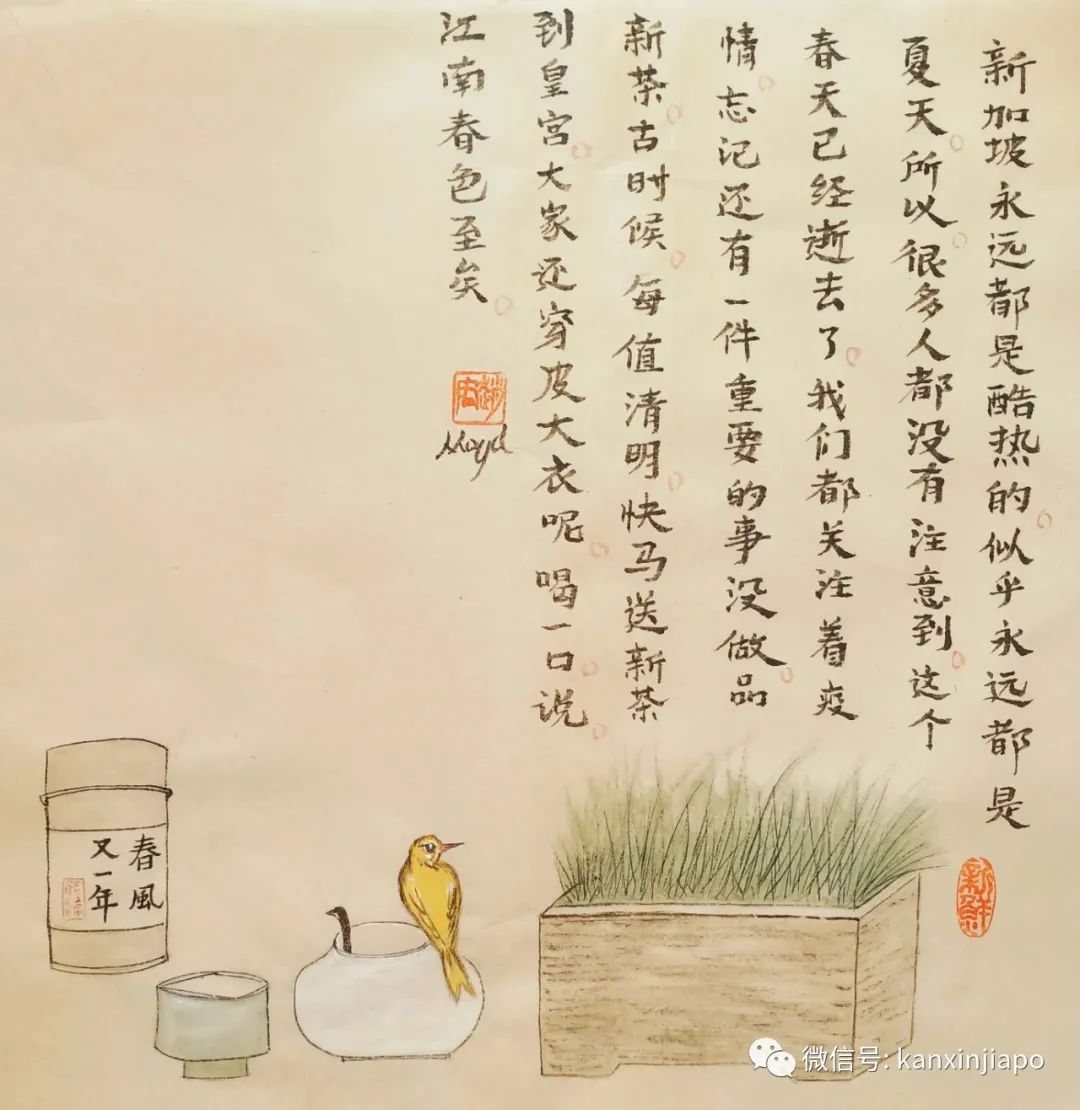 新加坡永远都是酷热的。似乎永远都是
夏天。所以。很多人都没有注意到。这个
春天已经逝去了。我们都关注着疫
情。忘记还有一件重要的事没做。品
新茶。古时候。每值清明。快马送新茶
到皇宫。大家还穿皮大衣呢。喝一口。说。
江南春色至矣。
新鲜
春風
又一年
微信号: kanxinjiapo